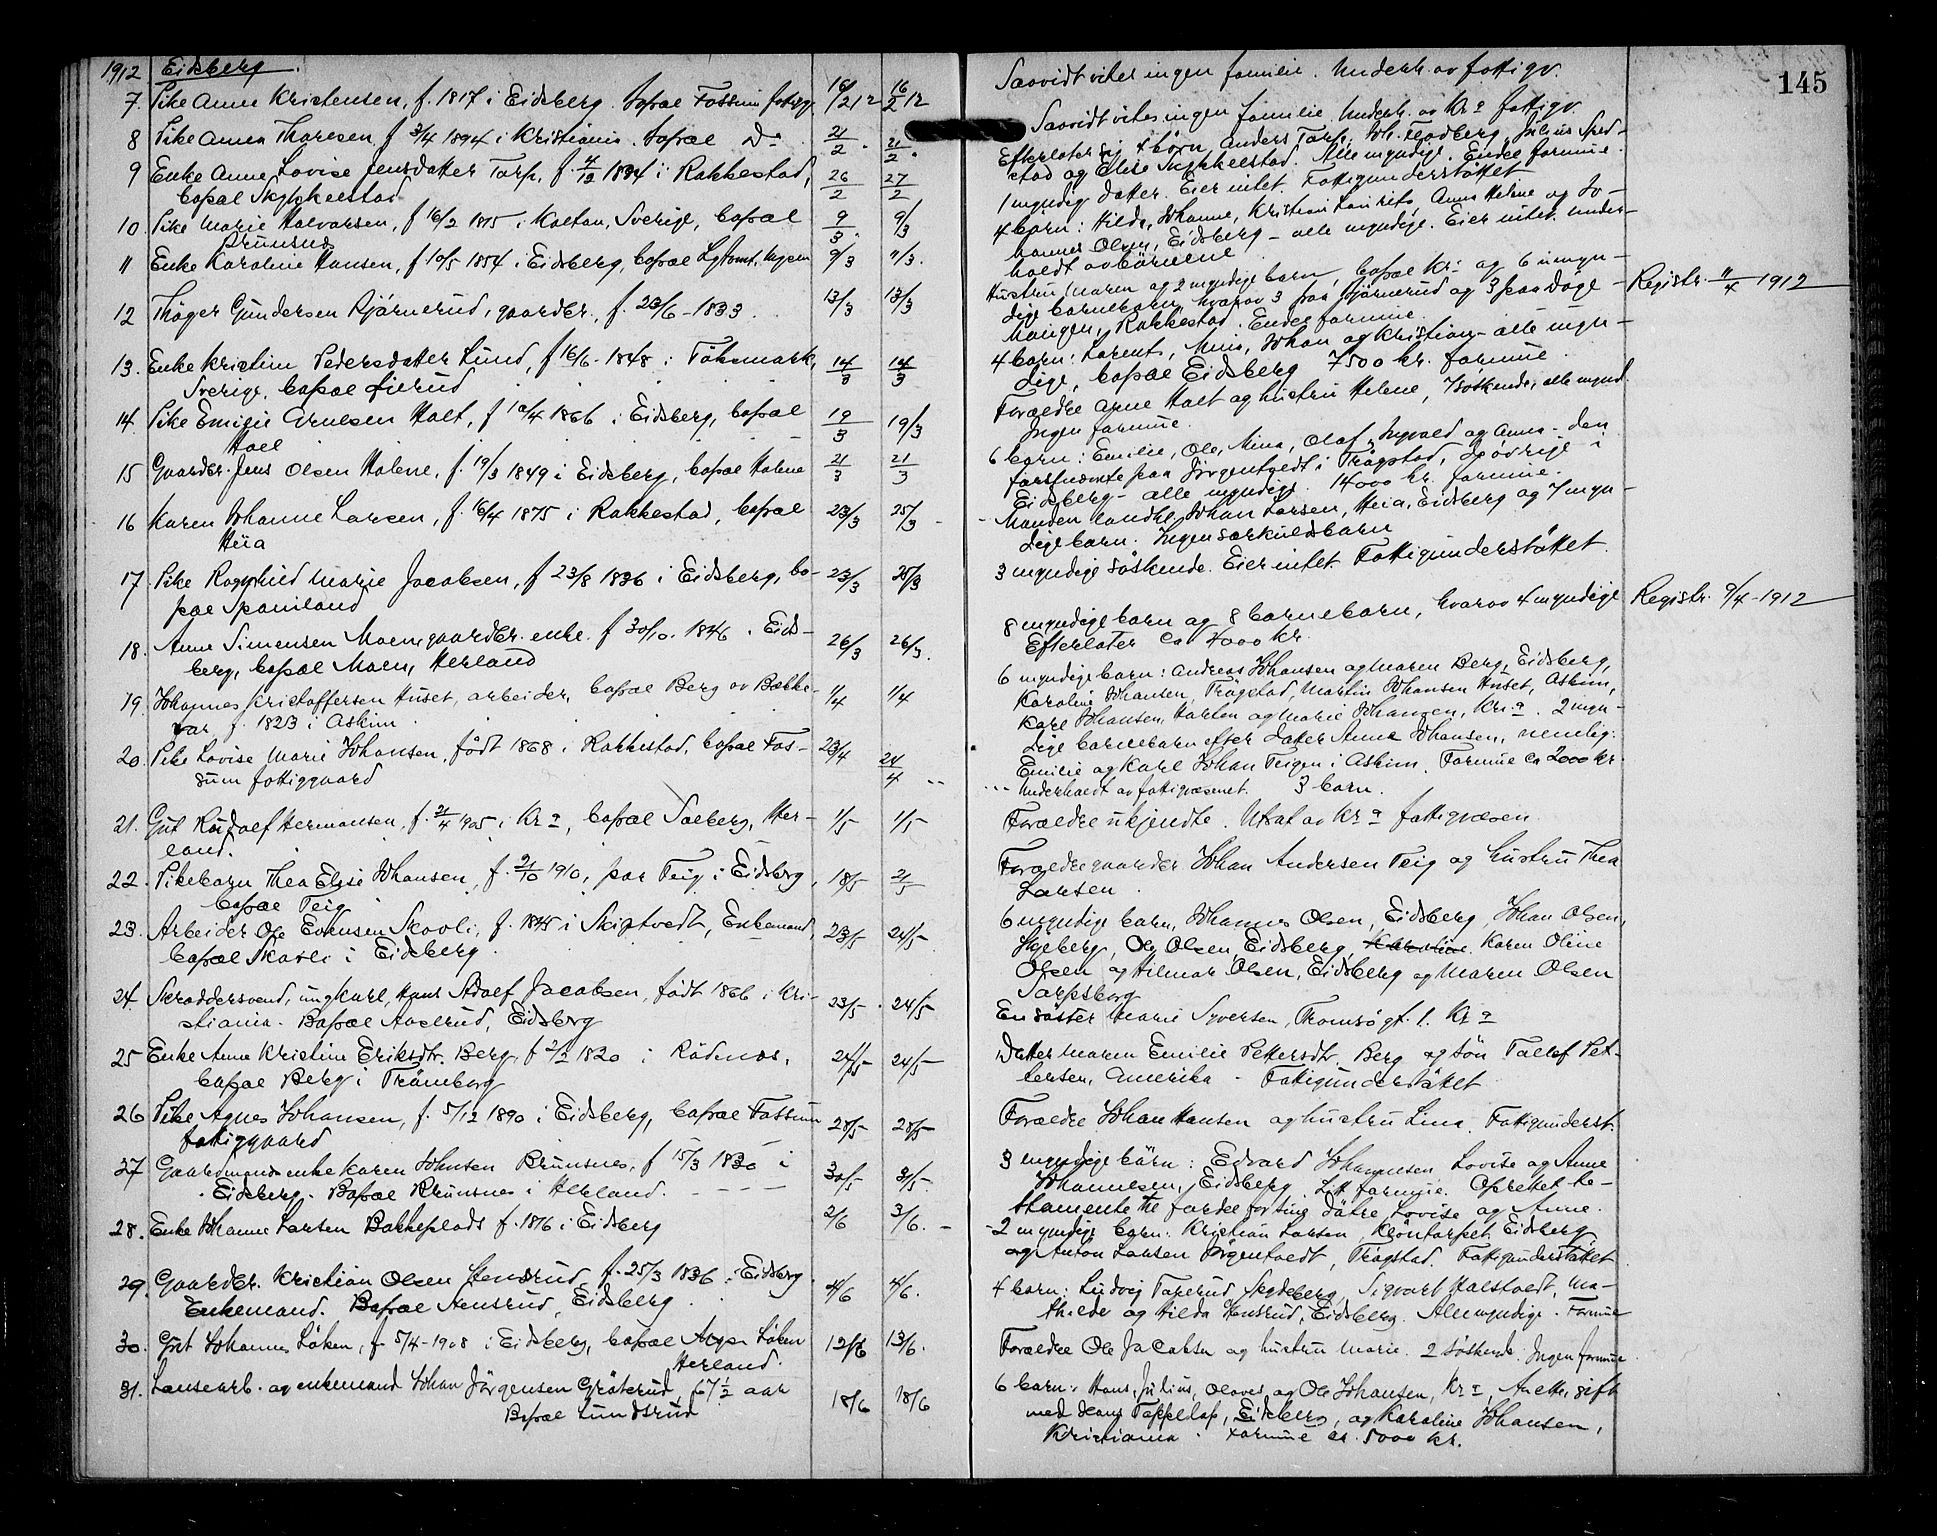 145
1912 Eidsberg.
7. Pike Anne Kristensen, f. 1817 i Eidsberg. bopæl Fossum fattigg. 16/2 12 16/2 12
Saavidt vites ingen familie. Underh. av fattigv.
8 Pike Anna Thoresen f 3/4 1894 i Kristiania. bopæl Do 21/2. 21/2.
Saavidt vites ingen familie. Underh. av Kr.a fattigv.
9 Enke Anne Lovise Jensdatter Torp, f. 4/12 1834 i Rakkestad, 26/2 27/2
bopæl Skykkelstad
Efterlater sig 4 börn, Anders Torp, Joh. Flodberg, Julius
stad og Elise Skykkelstad. Alle myndige. Endel formue.
10. Pike Marie Halvorsen, f 16/2 1875 i Sverige, bopæl 9/3. 9/3
Brunsnes
1 myndig datter. Eier intet. Fattigunderstøttet
11 Enke Karoline Hansen, f 10/5 1854 i Eidsberg, bopæl 9/3 11/3.
4 börn: Hilda, Johanne, Kristian Laurits, Anna Helene og Jo-
hannes Olsen, Eidsberg - alle myndige. Eier intet. Under-
holdt av börnene
12 Thöger Gundersen Bjørnerud, gaardbr., f. 23/6-1833. 13/3 13/3
Hustru Maren og 2 myndige barn, bopæl Kr.a og 6 umyn-
dige barnebarn, hvorav 3 paa Bjørnerud og 3 paa Döge-
haugen, Rakkestad. Endel formue.
Registr. 11/4 1912
13. Enke Kristine Pedersdatter Lund, f 16/6-1848 i Töksmark, 14/3 14/3
Sverige, bopæl
4 barn: Laurents, Mina, Johan og Kristian - alle myn-
dige, bopæl Eidsberg 7500 kr. formue.
14. Pike Emilie Arnesen Holt, f 10/4 1866 i Eidsberg, bopæl 19/3 19/3
Hoel
Forældre Arne Holt og hustru Helene, 7 söskende, alle mynd.
Ingen formue.
15 Gaardbr. Jens Olsen Holene, f. 19/3 1849 i Eidsberg, bopæl Holene 21/3 21/3
6 barn: Emilie, Ole, Mina, Olaf, Ingvald og Anna - den
förstnævnte paa Jörgentvedt i Trøgstad, de övrige i
Eidsberg - alle myndige. 14000 kr. formue.
16 Karen Johanne Larsen, f. 16/4 1875 i Rakkestad, bopæl 23/3 25/3
Heia
Manden landh. Johan Larsen, Heia, Eidsberg og 7 umyn-
dige barn. Ingen særkuldsbarn
17. Pike Ragnhild Marie Jacobsen, f 23/8 1836 i Eidsberg, bo- 23/3 25/3
pæl Spaniland
3 myndige söskende. Eier intet Fattigunderstöttet.
18. Anne Simensen Moen gaardbr. enke. f 30/10. 1846. Eids- 26/3 26/3.
berg, bopæl Moen, Herland
8 myndige barn og 8 barnebarn, hvorav 4 myndige
Efterlater ca 4000 kr.
Registr. 9/4-1912
19. Johannes Kristoffersen Huset, arbeider, bopæl Berg av Bække- 1/4 1/4
var f. 1823 i Askim
6 myndige barn: Andreas Johansen og Maren Berg, Eidsberg,
Karoline Johansen, Trögstad, Martin Johansen Huset, Askim,
Karl Johansen, og Marie Johansen, Kr.a. 2 myn-
dige barnebarn efter datter Anna Johansen, nemlig:
Emilie og Karl Johan Teigen i Askim. Formue ca 2000 kr.
20. Pike Lovise Marie Johansen, født 1868 i Rakkestad, bopæl Fos- 23/4 24/4
sum fattiggaard
Underholdt av fattigvæsenet. 3 barn.
21. Gut Rudolf Hermansen, f. 21/4 1905 i Kr.a, bopæl Solberg, Her- 1/5 1/5
land.
Forældre ukjendte. Utsat av Kr.a fattigvæsen.
22. Pikebarn Thea Elise Johansen, f. 9/10 1910, paa Teig i Eidsberg, 18/5 21/5
bopæl Teig
Forældre gaardbr Johan Andersen Teig og hustru Thea
Larsen.
23. Arbeider Ole Evensen Skovli, f. 1845 i Skiptvedt, Enkemand, 23/5 24/5
bopæl Skovli i Eidsberg.
6 myndige barn, Johannes Olsen, Eidsberg, Johan Olsen,
Skjeberg, Ole Olsen, Eidsberg, Karoline Karen Oline
Olsen og Hilmar Olsen, Eidsberg og Maren Olsen
Sarpsborg
24. Skraddersvend, ungkarl, Hans Adolf Jacobsen, født 1866 i Kri- 23/5. 24/5
stiania. Bopæl Eidsberg
En søster Marie Syversen, Tromsögt. 1. Kr.a
25 Enke Anne Kristine Eriksdtr. Berg, f 2/2 1820 i Rödenes, 24/5 24/5
bopæl Berg i Trömborg
Datter Maren Emilie Pettersdtr. Berg og sön Tollef Pet-
tersen, Amerika. Fattigunderstöttet
26 Pike Agnes Johansen, f. 5/12 1890 i Eidsberg, bopæl Fossum 28/5 28/5
fattiggaard
Forældre Johan Hansen og hustru Lina. Fattigunderst.
27 Gaardmandsenke Karen Johnsen Brunsnes, f 15/3 1830 i 30/5 31/5
Eidsberg. Bopæl Brunsnes i Herland.
3 myndige börn: Edvard Johannesen, Lovise og Anne
Johannesen, Eidsberg. Litt formue. Oprettet te-
stamente til fordel for sine dötre Lovise og Anne.
28. Enke Johanne Larsen Bakkeplads f. 1816 i Eidsberg 2/6 3/6.
2 myndige barn: Kristian Larsen, Eidsberg
og Anton Larsen Jörgentvedt, Trögstad. Fattigunderstöttet
29. Gaardbr. Kristian Olsen Stensrud f. 25/3 1836 i Eidsberg. 4/6 4/6.
Enkemand. Bopæl Stensrud, Eidsberg.
4 barn: Ludvig Skydeberg, Sigvart Ma-
thilde og Hilda Stensrud, Eidsberg. Alle myndige. Formue
30. Gut Johannes Löken, f 5/4-1908 i Eidsberg, bopæl Löken 12/6 13/6.
Herland.
Forældre Ole Jacobsen og hustru Marie. 2 söskende. Ingen formue
31. Lausarb. og enkemand Johan Jörgensen Gräterud, 67 1/2 aar 18/6 18/6
Bopæl Lundsrud
6 barn: Hans, Julius, Olaves og Ole Johansen, Kr.a, Anette, gift
med Hans Eidsberg, og Karoline Johansen,
Kristiania. Formue ca. 5000 kr.